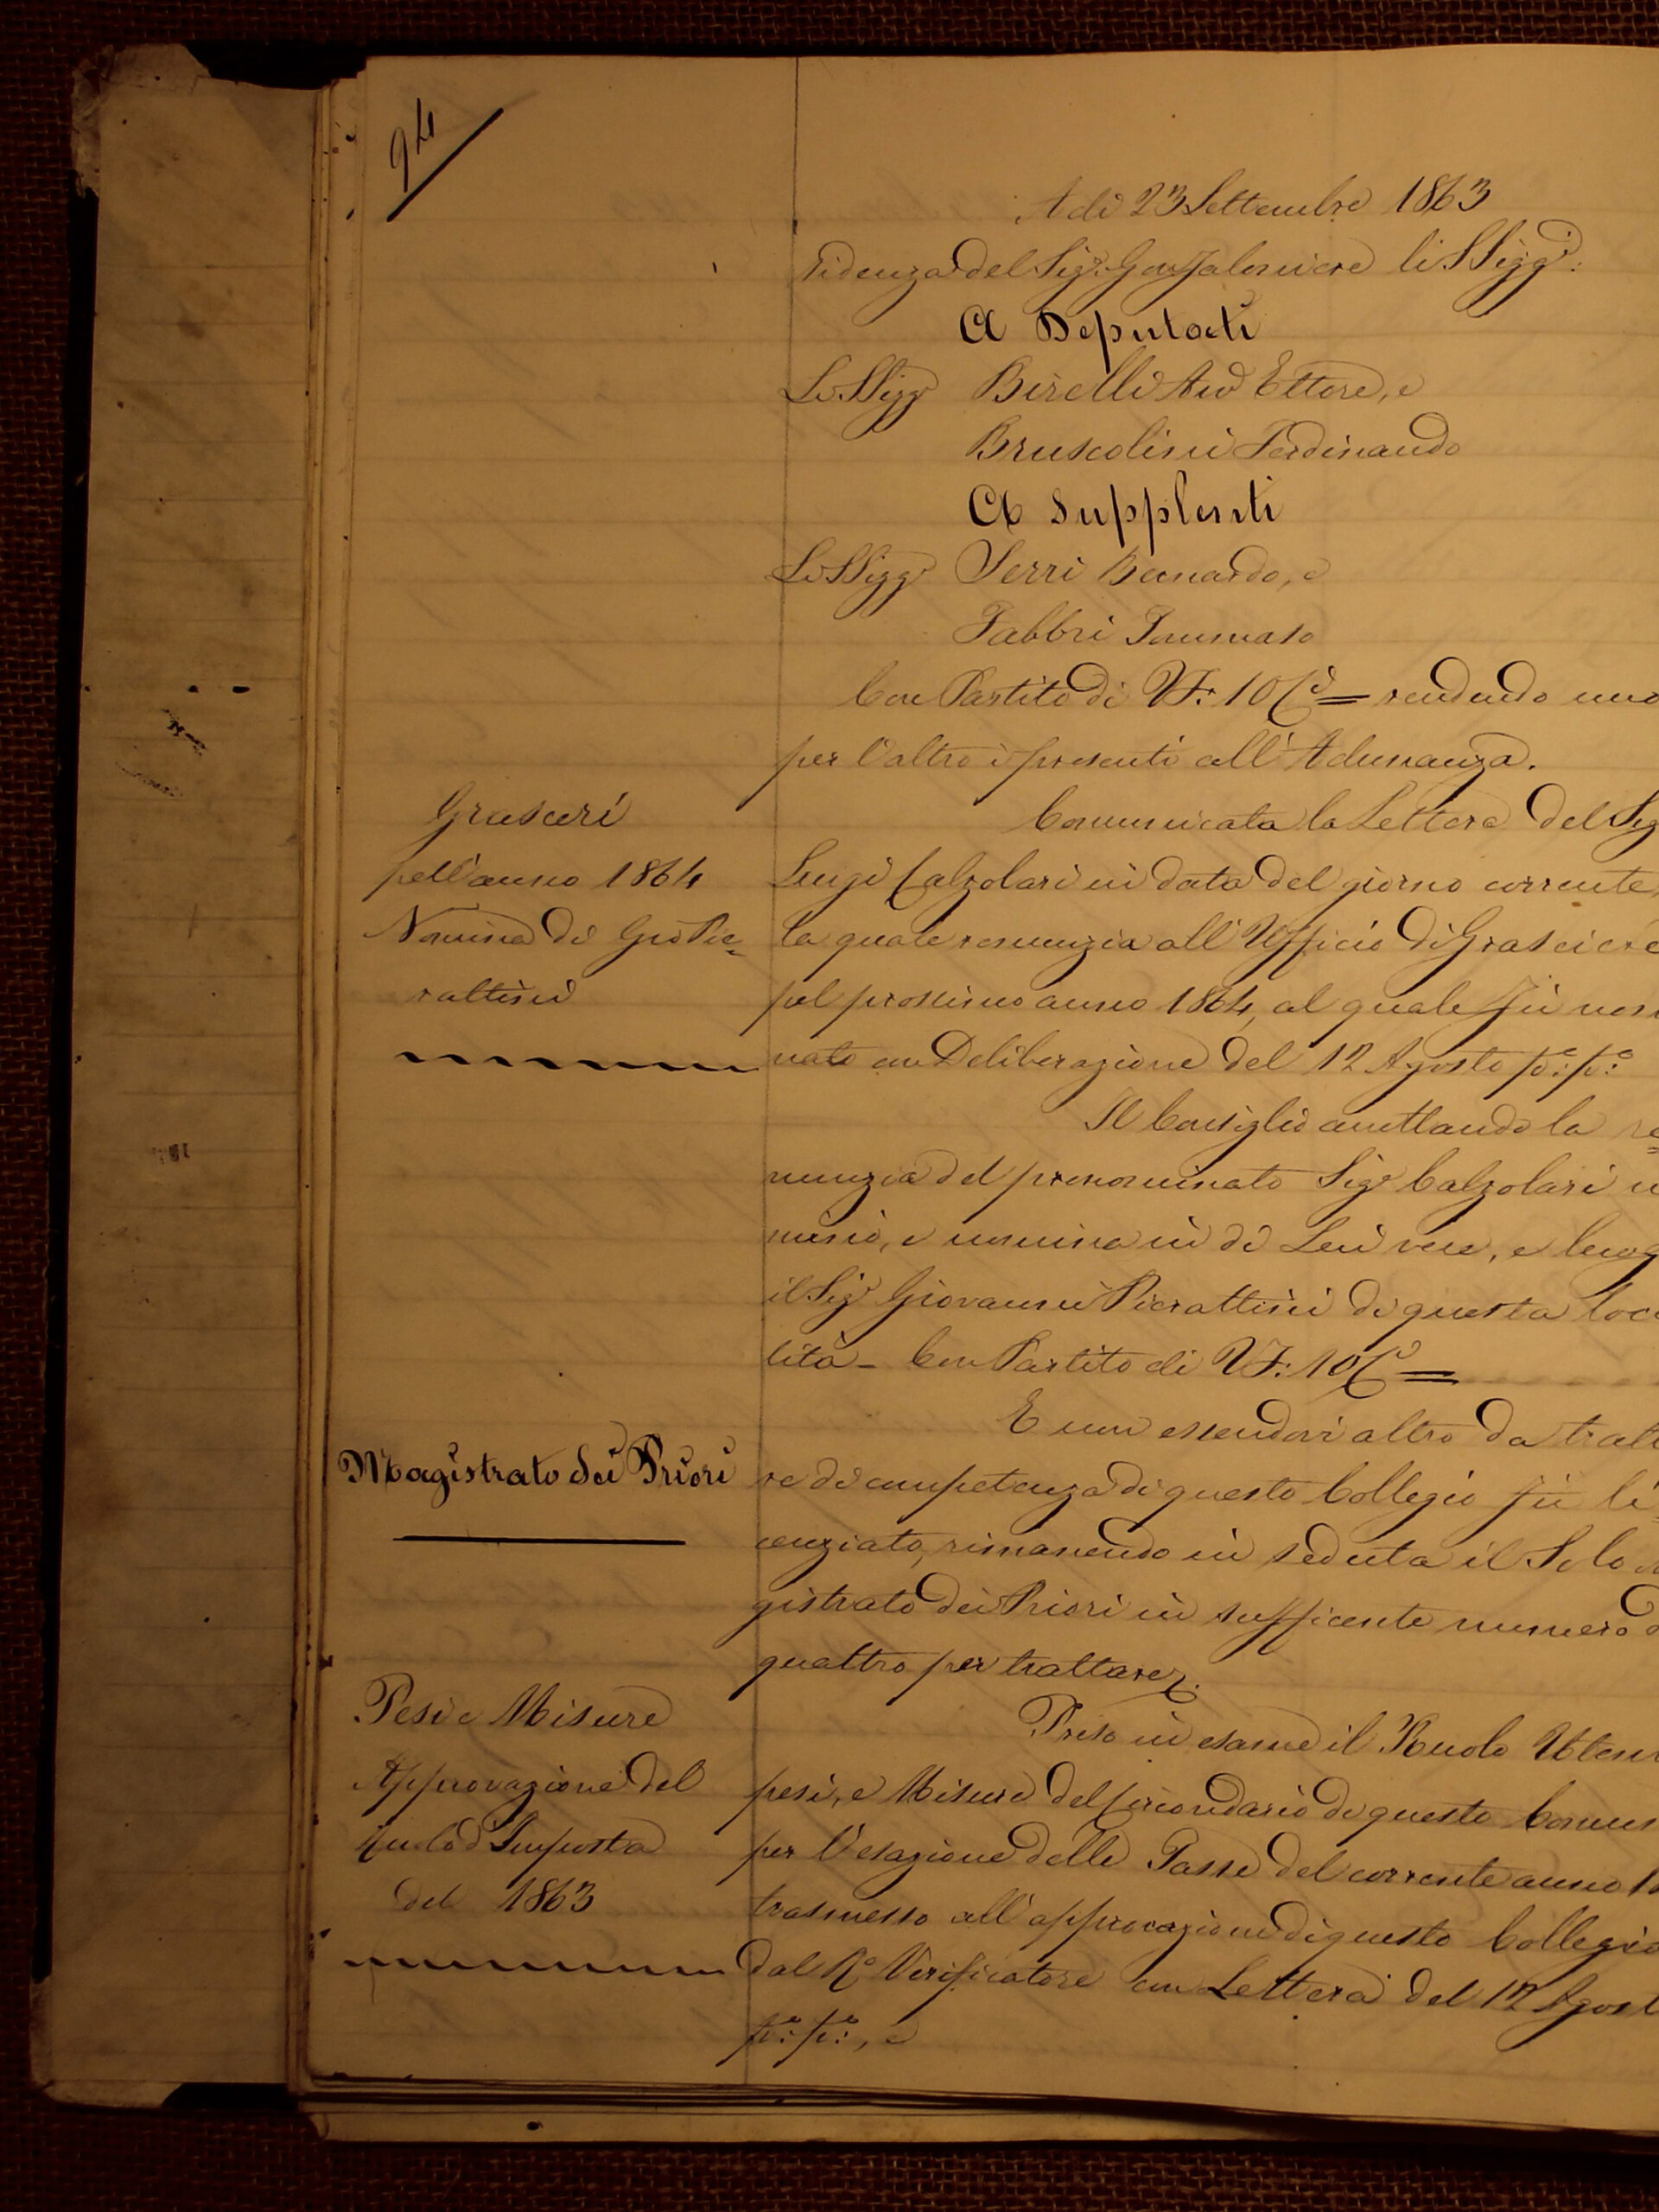 94
A dì 23 Settembre 1863
sidenza del Sigr. Gonfaloniere li SSiggri:
A Deputati
Li SSiggr Birelli Avv Ettore, e
Bruscolini Ferdinando
A Supplenti
Li SSiggr Serri Bernardo, e
Fabbri Tommaso
Con Partito di VF: 10 Ci = rendendo uno
per l'altro i presenti all'Adunanza.
Grasceri
pell'anno 1864
Nomina di Gio Pie=
rattini
Comunicata la Lettera del Sig
Luigi Calzolari in data del giorno corrente,
la quale renunzia all'Ufficio di Grasciere
pel prossimo anno 1864, al quale fù nomi
nato con Deliberazione del 12 Agosto po: po:
Il Consiglio accettando la re=
nunzia del prenominato Sigr Calzolari
e nomina in di Lui vece, e luog
il Sigr Giovanni Pierattini di questa loca
lità – Con Partito di VF: 10 Ci =
Magistrato dei Priori
E non essendovi altro da tratta
re di competenza di questo Collegio fù li=
cenziato, rimanendo in seduta il Solo
gistrato dei Priori in sufficente numero di
quattro per trattare.
Pesi e Misure
Approvazione del
Ruolo d'Imposta
del 1863
Preso in esame il Ruolo Utenti
pesi, e Misure del Circondario di questo Comun
per l'esazione delle Tasse del corrente anno 18
trasmesso all'approvazione di questo Collegio
dal Ro Verificatore con Lettera del 12 Agost
po: po:, e